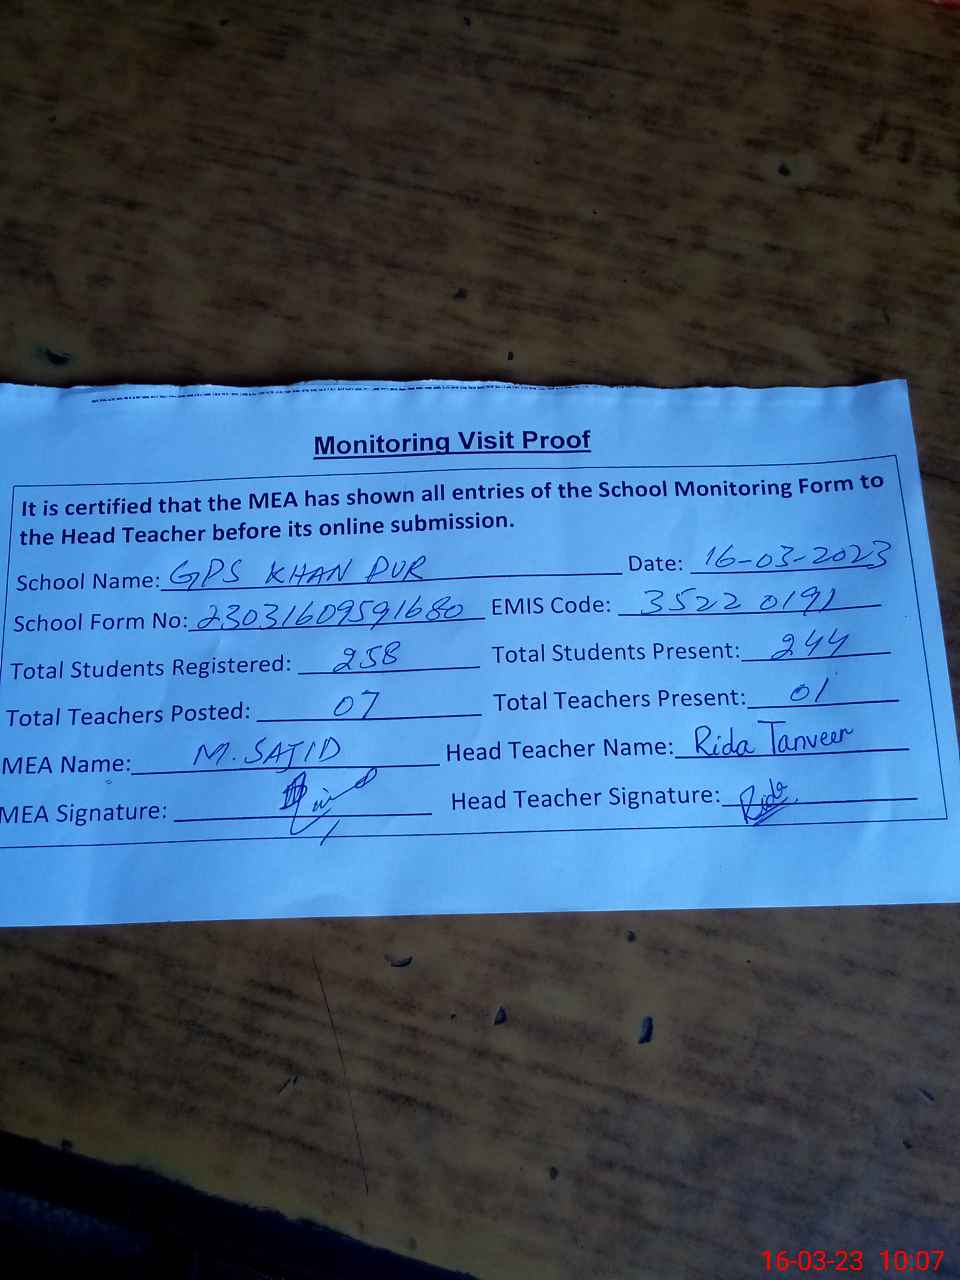 Monitoring Visit Proof
It is certified that the MEA has shown all entries of the School Monitoring Form to
the Head Teacher before its online submission.
School Name: GPS KHAN PUR Date: 16-03-2023
School Form No: 23031609591680 EMIS Code: 35220191
Total Students Registered: 258 Total Students Present: 244
Total Teachers Posted: 07 Total Teachers Present: 01
MEA Name: M. SAJID Head Teacher Name: Rida Tanveer
MEA Signature: Head Teacher Signature: Rida
16-03-23 10:07